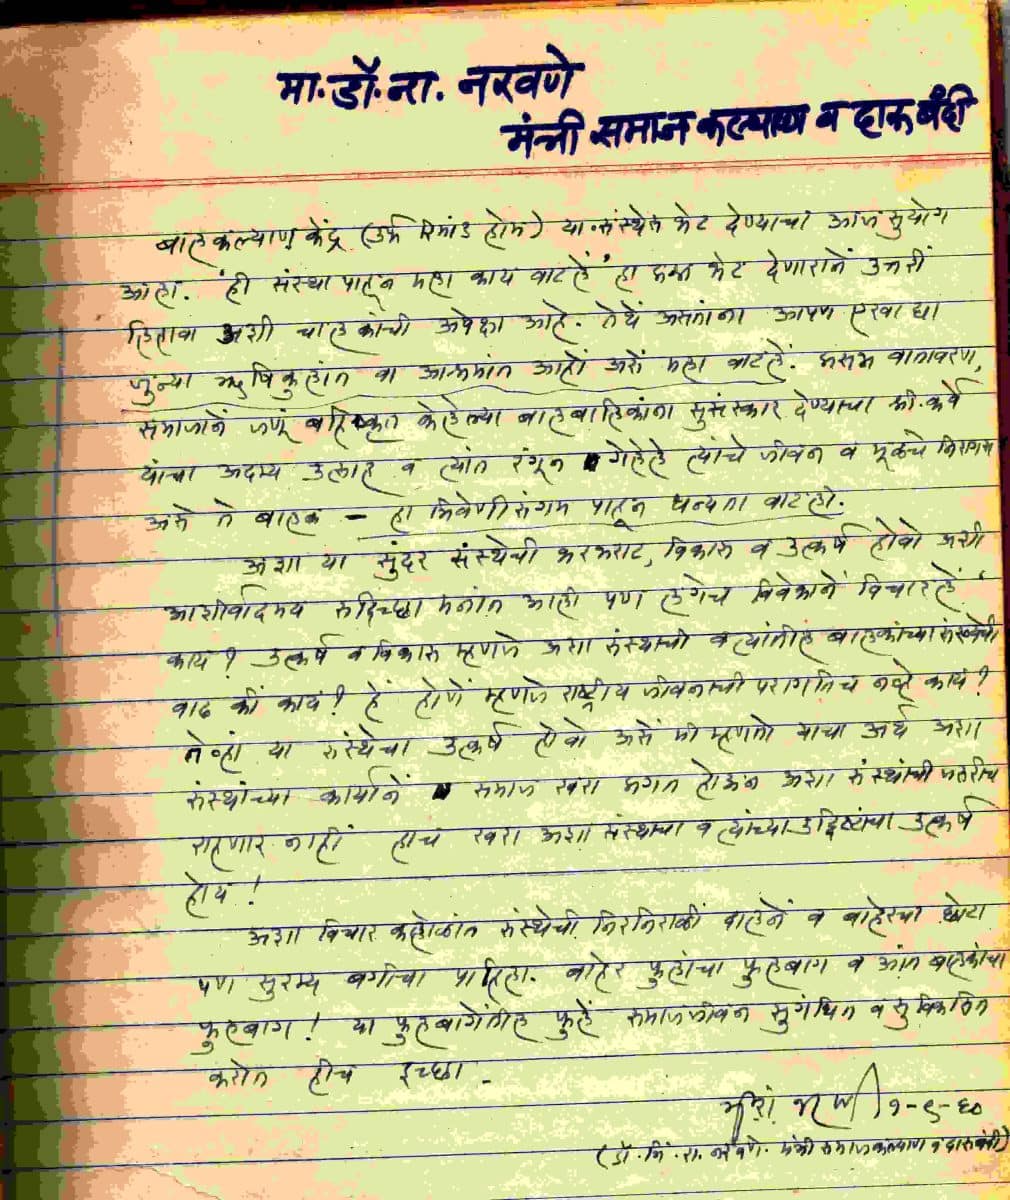 मा. डॉ. ना. नरवणे
मंत्री समाज कल्याण व दारू बंदी
बालकल्याण केंद्र (उर्फ रिमांड होम) या संस्थेस भेट देण्याचा आज सुयोग
आला. ही संस्था पाहून मला काय वाटलें हा भेट देणारानें उत्तरीं
लिहावा अशी चालकांची अपेक्षा आहे. तेथें असतांना आपण एखाद्या
जुन्या ऋषिकुलांत वा आश्रमांत आहों असें मला वाटलें. प्रसन्न वातावरण,
समाजानें जणूं बहिष्कृत केलेल्या बालबालिकांना सुसंस्कार देण्याचा श्री. कर्वे
यांचा अदम्य उत्साह व त्यांत रंगून गेलेले त्यांचे जीवन व मूळचे निरागस
असे ते बालक — हा त्रिवेणी संगम पाहून धन्यता वाटली.
अशा या सुंदर संस्थेची भरभराट, विकास व उत्कर्ष होवो अशी
आशीर्वादमय सदिच्छा मनांत आली पण लगेच विवेकानें विचारलें
काय? उत्कर्ष व विकास म्हणजे अशा संस्थांची व त्यांतील बालकांच्या संख्येची
वाढ कीं काय? हें होणें म्हणजे राष्ट्रीय जीवनाची परागतिच नव्हे काय?
तेव्हां या संस्थेचा उत्कर्ष होवो असें मी म्हणतो याचा अर्थ अशा
संस्थांच्या कार्यानें समाज खरा प्रगत होऊन अशा संस्थांची जरूरीच
राहणार नाहीं हाच खरा अशा संस्थांचा व त्यांच्या उद्दिष्टांचा उत्कर्ष
होय!
अशा विचार कल्लोळांत संस्थेचीं निरनिराळीं दालनें व बाहेरचा छोटा
पण सुरम्य बगीचा पाहिला. बाहेर फुलांचा फुलबाग व आंत बालकांचा
फुलबाग! या फुलबागेंतील फुलें समाजजीवन सुगंधित व सुविकसित
करोत हीच इच्छा.
१-९-६०
(डॉ. त्रिं. रा. नरवणे. मंत्री समाजकल्याण व दारूबंदी)